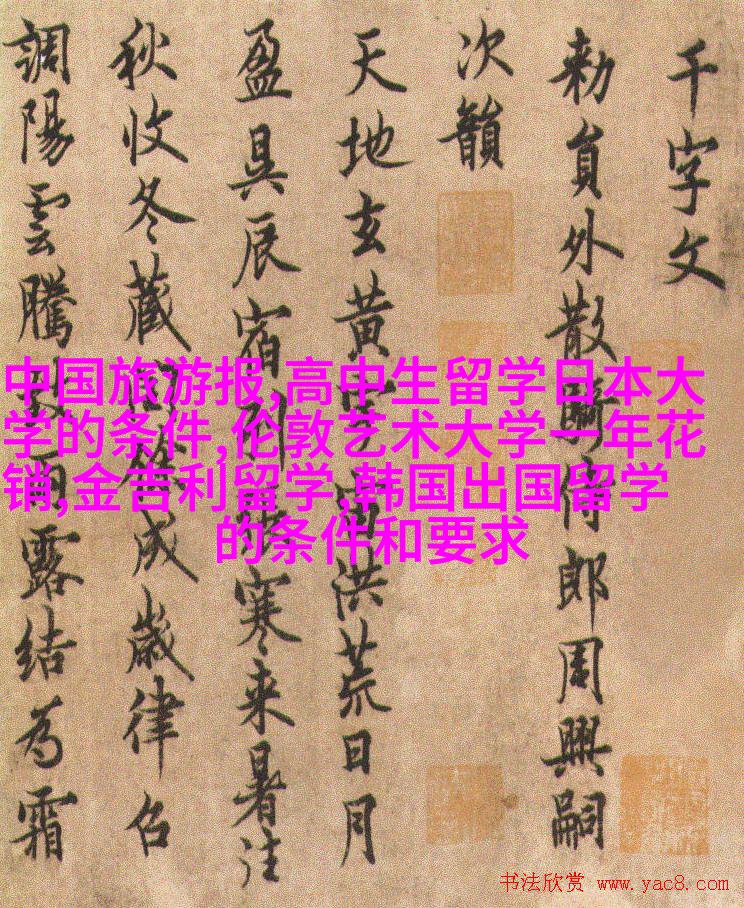 千字文
勅員外散騎侍郎周興嗣
次韻
天地玄黃宇宙洪荒日月
盈昃辰宿列張寒来暑往
秋收冬藏閏餘成歲律召
調陽雲騰致雨露結為霜
中国旅游报,高中生留学日本大
学的条件,伦敦艺术大学一年花
销,金吉利留学,韩国出国留学
的条件和要求
书法欣赏 www.yac8.com